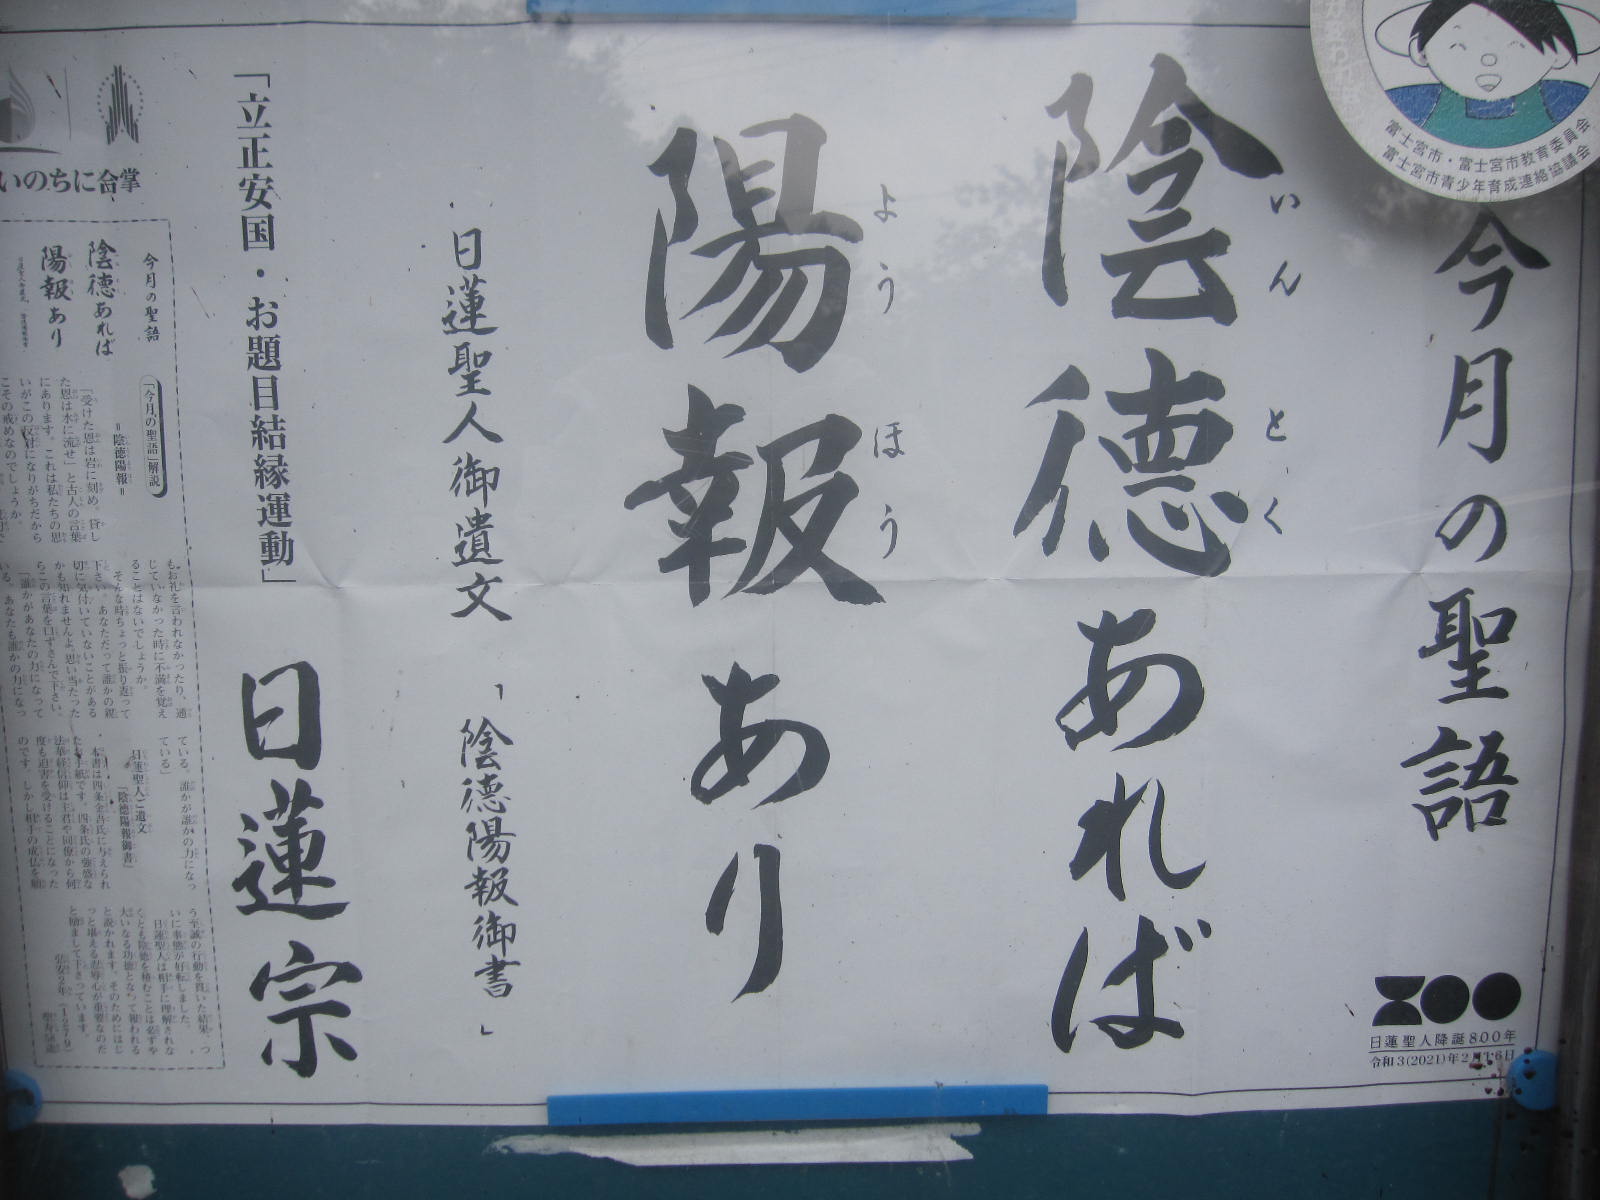 今月の聖語
陰徳あれば
いんとく
陽報あり
ようほう
日蓮聖人御遺文「陰徳陽報御書」
「立正安国・お題目結縁運動」
日蓮宗
800
日蓮聖人降誕800年
令和3(2021)年2月16日
富士宮市・富士宮市教育委員会
富士宮市青少年育成連絡協議会
いのちに合掌
今月の聖語
陰徳あれば
陽報あり
「今月の聖語」解説
=陰徳陽報=
「受けた恩は岩に刻め。貸し
た恩は水に流せ」と古人の言葉
にあります。これは私たちの恩
いがこの反対になりがちだから
こその戒めなのでしょうか。
もお礼を言われなかったり、通
じていなかった時に不満を覚え
ることはないでしょうか。
そんな時ちょっと振り返って
下さい。あなただって誰かの親
切に気付いていないことがある
かも知れませんよ。思い当たった
らこの言葉を口ずさんで下さい。
「誰かがあなたの力になって
いる、あなたも誰かの力になっ
ている。誰かが誰かの力になっ
ている」
日蓮聖人ご遺文
「陰徳陽報御書」
本書は四条金吾氏に与えられ
たお手紙です。四条氏の強盛な
法華経信仰は主君や同僚から何
度も迫害を受けることになった
のです。しかし相手の成仏を願
う至誠の行動を貫いた結果、つ
いに事態が好転しました。
日蓮聖人は相手に理解されな
くとも陰徳を積むことは必ずや
大いなる功徳となって報われる
と説かれます。そのためにはじ
っと堪える忍辱心が重要なのだ
と励まして下さっています。
弘安2年(1279)
聖寿58歳